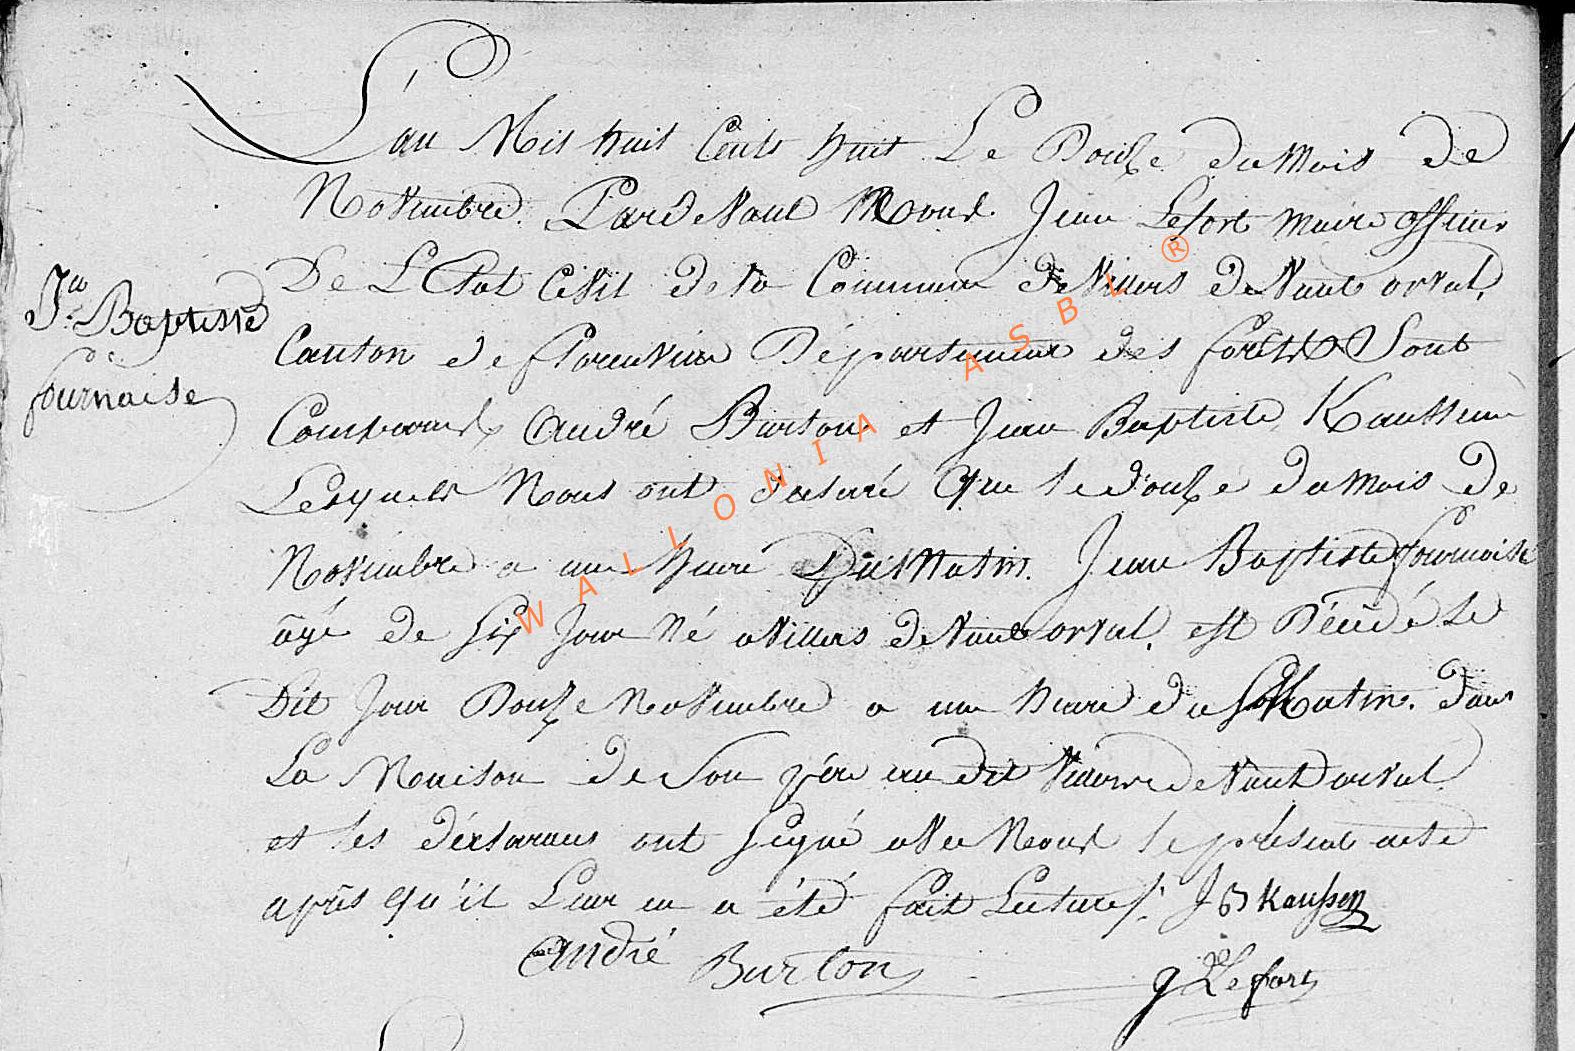 L'an Mil huit Cents huit Le Douze du Mois de
Novembre. Pardevant Nous Jean Lefort Maire officier
De L'Etat Civil de la Commune de Villers Devant orval,
Canton de florenville Département des forêts Sont
Comparus André Burton et Jean Baptiste Kaussenne
Lesquels Nous ont déclaré Que le douze du Mois de
Jn Baptiste
fournaise
Novembre a une heure Du Matin. Jean Baptiste fournaise
âgé de six Jour Né a Villers Devant orval. est Décédé le
Dit Jour Douze Novembre a une heure du Matin. dans
La Maison de Son père au dit Villers Devant orval
et les déclarans ont signé avec Nous le présent acte
après qu'il Leur en a été fait Lecture /. J B Kaussen
André Burton
J Lefort
WALLONIA ASBL ®